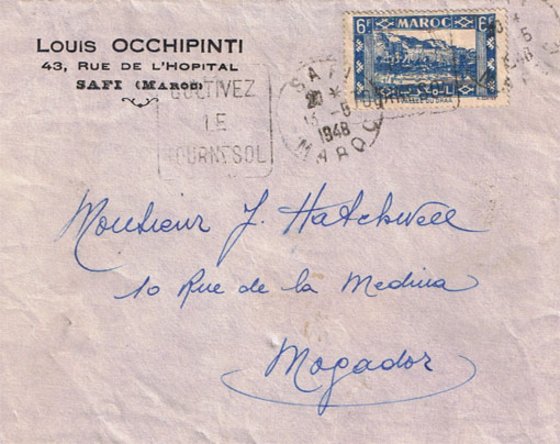 LOUIS OCCHIPINTI
43, RUE DE L'HOPITAL
SAFI (MAROC)
CULTIVEZ
LE
TOURNESOL
6F MAROC 6F
SAFI
1948
MAROC
Monsieur J. Hatchwell
10 Rue de la Medina
Mogador